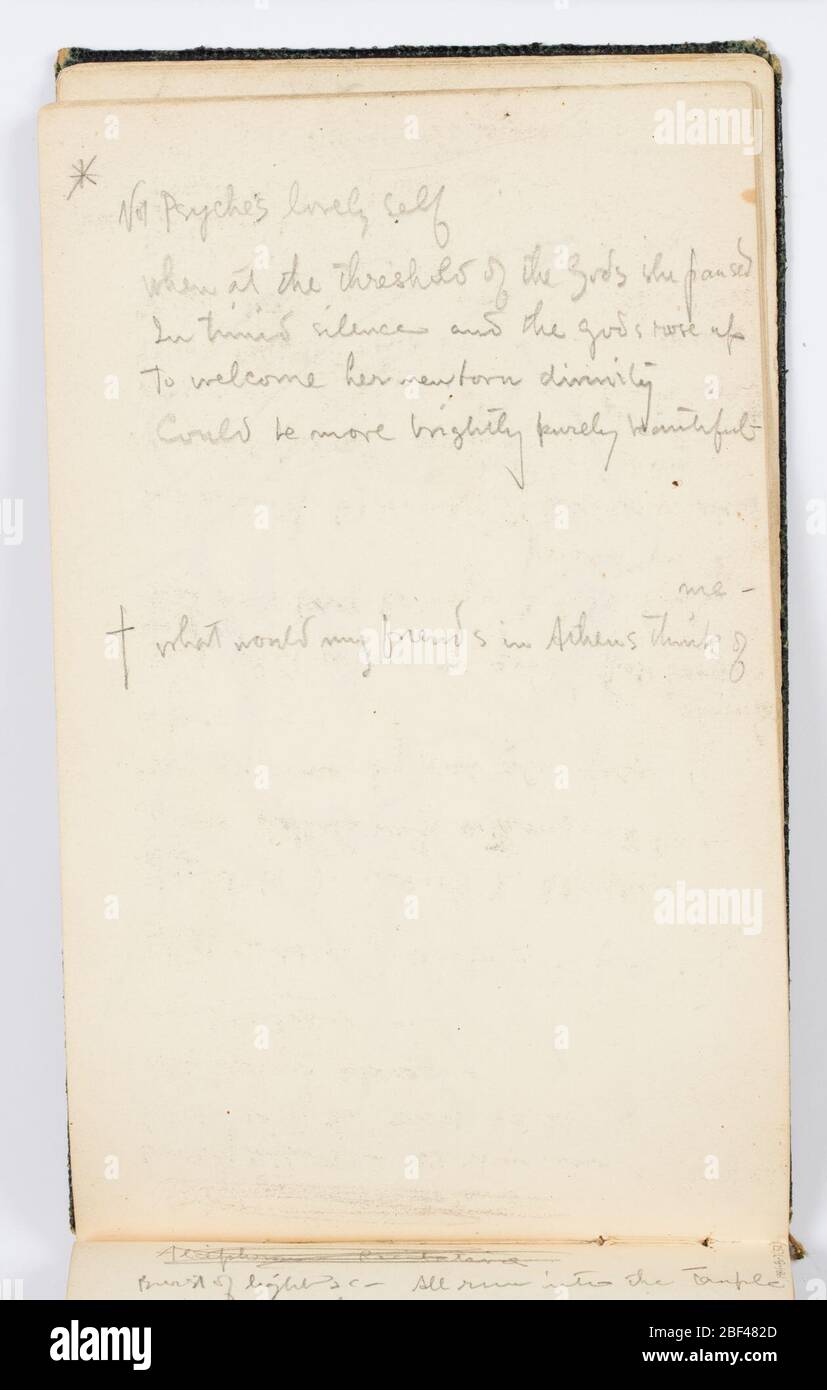 *
Not Psyche's lovely self
when at the threshold of the Gods she paused
In timid silence and the gods rose up
To welcome her newborn divinity
Could be more brightly purely beautiful-
me -
† what would my friends in Athens think of
Burst of light &c - All run into the Temple
alamy
Image ID: 2BF482D
www.alamy.com